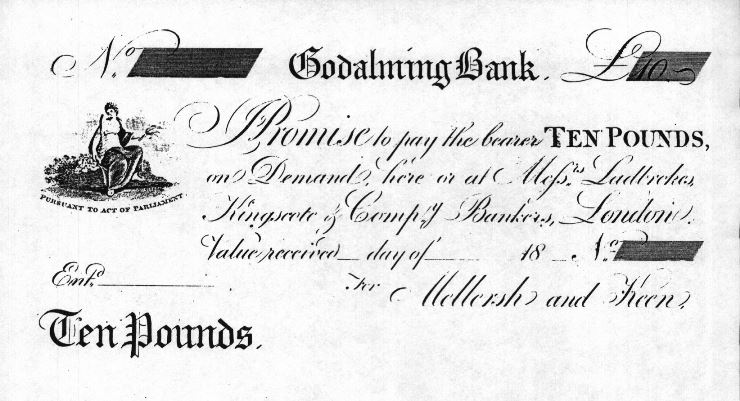 No.
Godalming Bank.
£10.
I Promise to pay the bearer TEN POUNDS,
on Demand, here or at Messrs. Ladbrokes,
Kingscote & Compy Bankers, London.
Value received day of 18 No.
PURSUANT TO ACT OF PARLIAMENT.
Entd.
For Mellersh and Keen,
Ten Pounds.